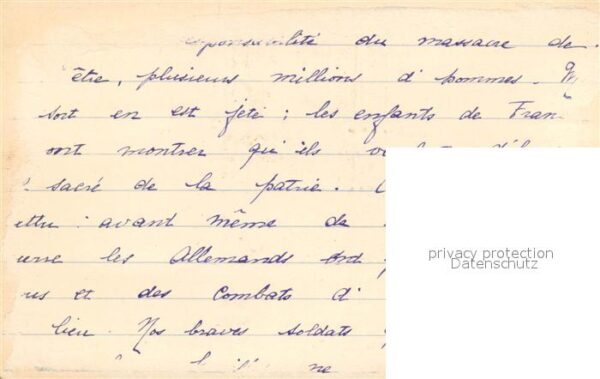 du massacre de
être, plusieurs millions d'hommes.
sort en est jeté : les enfants de Fran-
ont montrer qu'ils
sacré de la patrie.
avant même de
les Allemands
us et des combats d'
lieu. Nos braves soldats
ne
privacy protection
Datenschutz